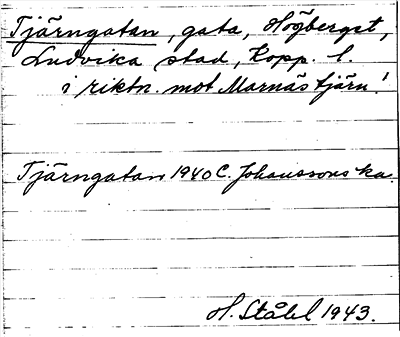 Tjärngatan, gata, Högberget,
Ludvika stad, Kopp. l.
i riktn. mot Marnästjärn!
Tjärngatan 1940 C. Johanssons ka.
H. Ståhl 1943.